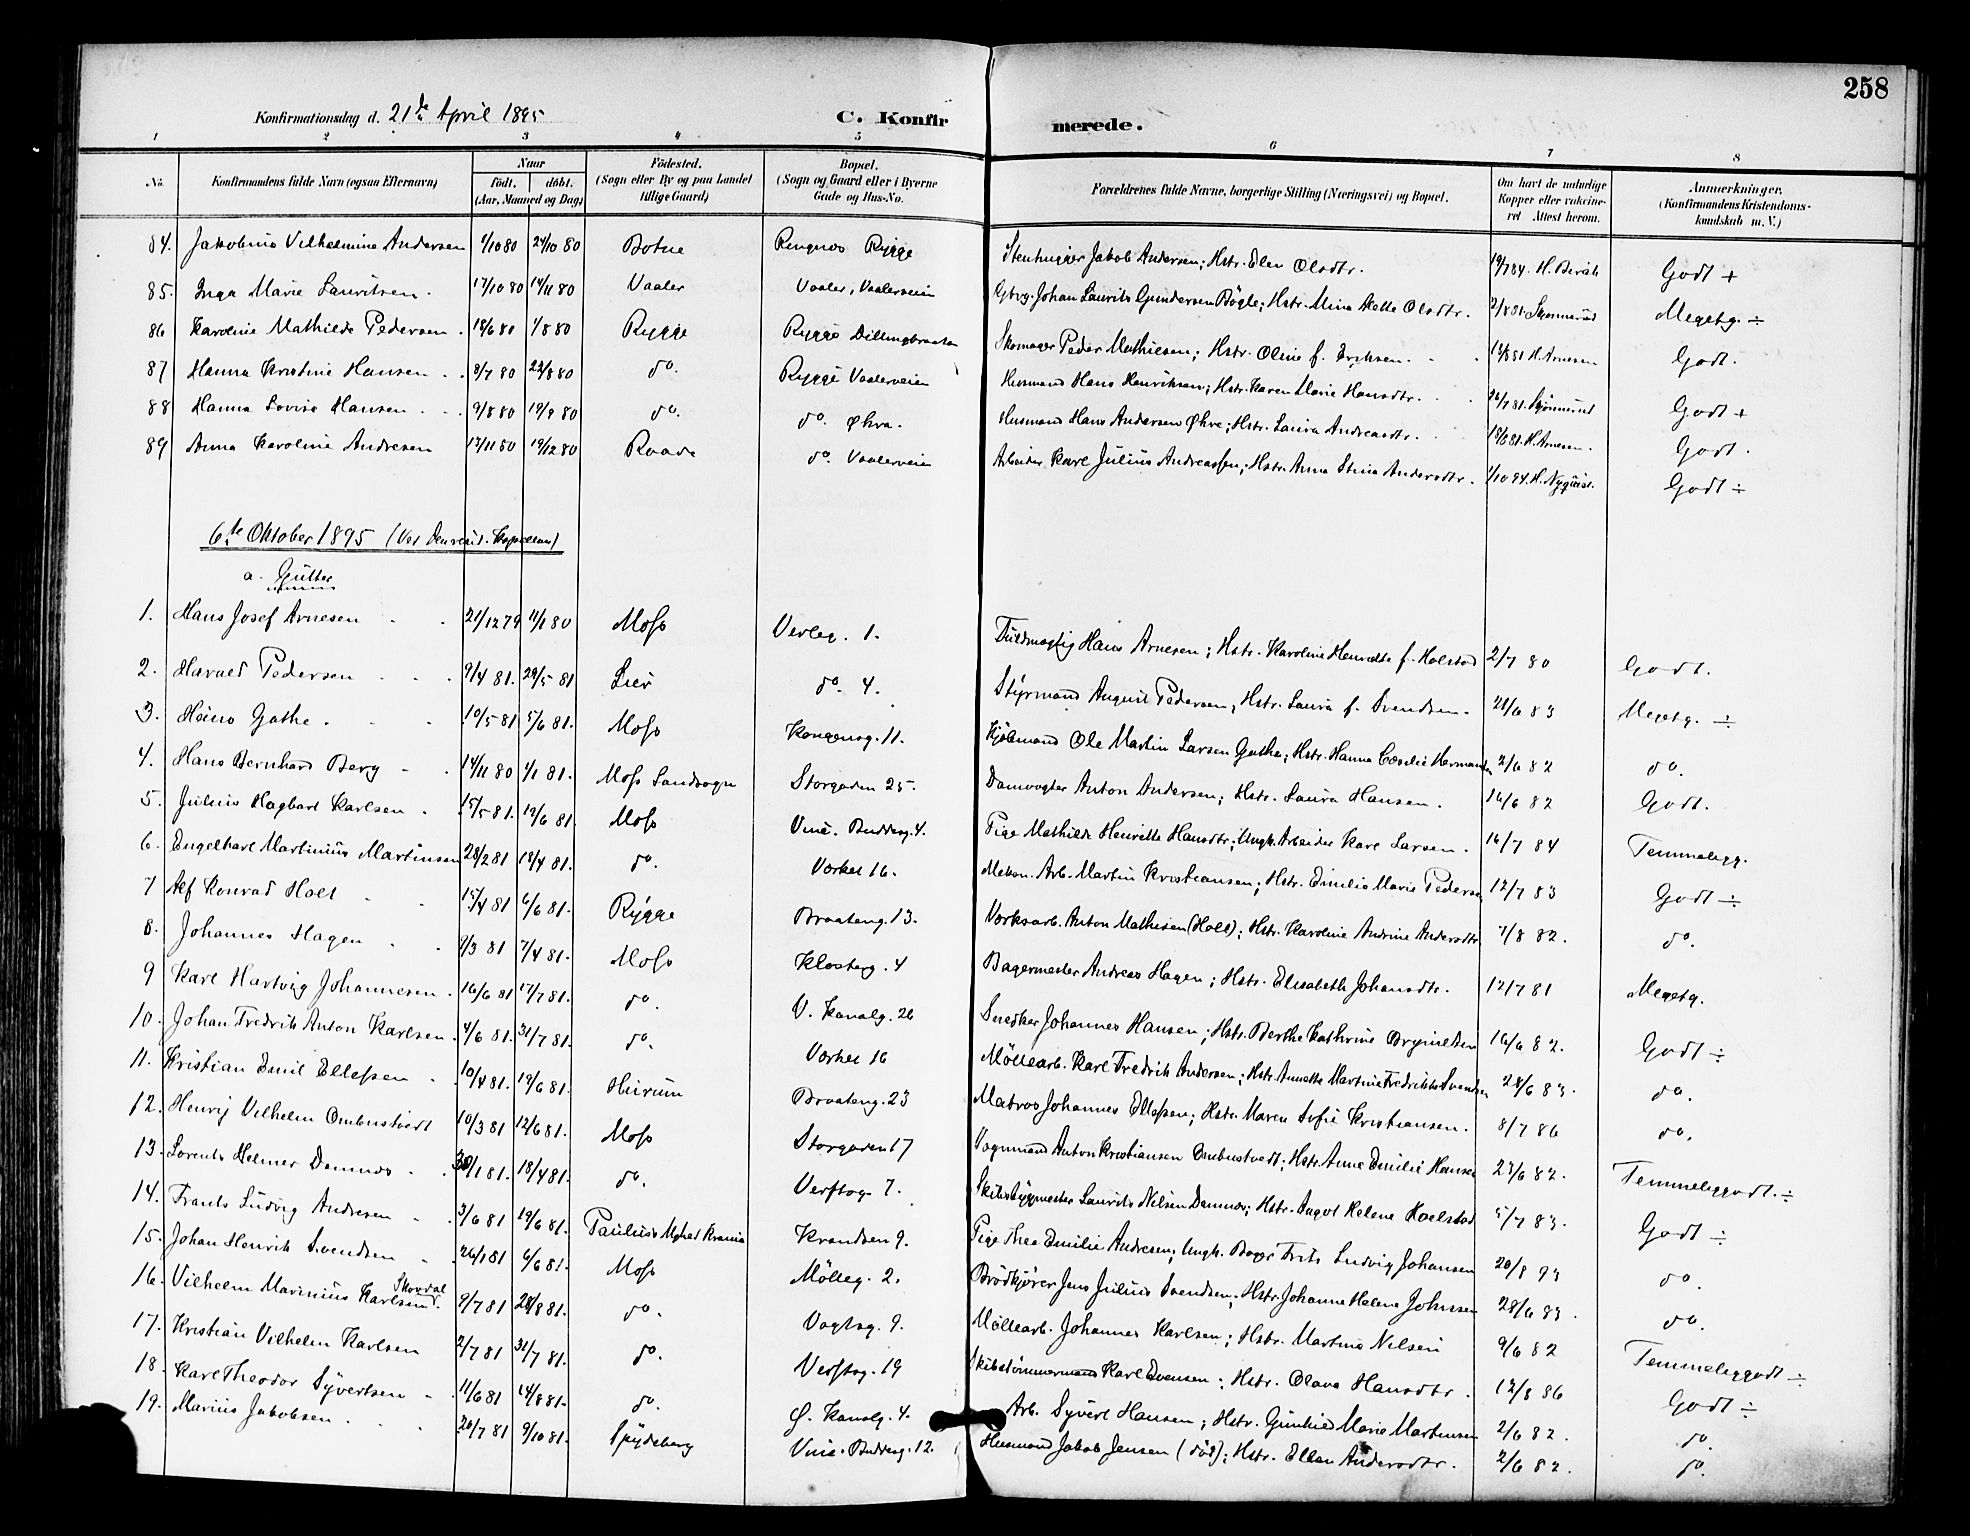 258
Konfirmationsdag d. 21de April 1895 C. Konfirmerede.
1 2 3 4 5 6 7 8
No. Konfirmandens fulde Navn (ogsaa Efternavn) Naar født. døbt. (Aar, Maaned og Dag) Fødested. (Sogn eller By og paa Landet tillige Gaard) Bopæl. (Sogn og Gaard eller i Byerne Gade og Hus-No. Forældrenes fulde Navne, borgerlige Stilling (Næringsvei) og Bopæl. Om havt de naturlige Kopper eller vaccineret Attest herom. Anmerkninger. (Konfirmandens Kristendomskundskab m. V.)
84. Jakobine Vilhelmine Andersen 1/10 80 24/10 80 Botne Ringnes Rygge Stenhugger Jakob Andersen; Hstr. Elen Olsdtr. 19/7 84. Godt +
85. Inga Marie Lauritsen 17/10 80 14/11 80 Vaaler Vaaler, Vaalerveien Gbrg. Johan Laurits Gundersen Bøgle; Hstr. Mina Mette Olsdtr. 2/8 81 Skønnerud Megetg. ÷
86 Karoline Mathilde Pedersen 18/6 80 1/8 80 Rygge Rygge Dillingbraaten Skomager Peder Mathiesen; Hstr. Oline f. Eriksen 13/8 81 H. Arnesen Godt.
87 Hanna Kristine Hansen 8/7 80 22/8 80 do. Rygge Vaalerveien Husmand Hans Henriksen; Hstr. Karen Marie Hansdtr. 26/7 81. Skjønnerud Godt +
88 Hanna Lovise Hansen 9/8 80 19/9 80 do. do. Øhra. Husmand Hans Andersen Øhre; Hstr. Laura Andreasdtr. 18/6 81. H. Arnesen. Godt.
89 Anna Karoline Andresen 17/11 80 19/12 80 Raade do. Vaalerveien Arbeider Karl Julius Andreassen; Hstr. Anna Stina Andersdtr. 1/10 94. H. Nyquist. Godt ÷
6te Oktober 1895 (Ved Kapellan)
a. Gutter
1. Hans Josef Arnesen 21/12 79 11/1 80 Moss Verleg. 1. Fuldmægtig Hans Arnesen; Hstr. Karoline Henriette f. Holstad 2/7 80 Godt.
2. Harald Pedersen 9/4 81. 29/5 81 Lier do. 4. Styrmand August Pedersen, Hstr. Laura f. Svendsen. 28/6 83 Megetg. ÷
3. Heino Gathe 10/5 81 5/6 81. Moss Kongensg. 11. Kjøbmand Ole Martin Larsen Gathe; Hstr. Hanna Cecilie Hermansen 2/6 82 do.
4. Hans Bernhard Berg 14/11 80 4/1 81. Moss Landsogn Storgaden 25. Damvogter Anton Andersen; Hstr. Laura Hansen. 16/6 82 Godt.
5. Julius Hagbart Karlsen 15/5 81. 19/6 81. Moss Vinc. Buddesg. 4. Pige Mathilde Henriette Hansdtr; Ungk. Arbeider Karl Larsen. 16/7 84 Temmeligg.
6. Engelhart Martinius Martinsen 28/2 81 18/4 81. do. Værket 16. Mekan. Arb. Martin Kristiansen; Hstr. Emilie Marie Pedersen 12/7 83 Godt ÷
7 Alf Konrad Holt 15/4 81 6/6 81. Rygge Braateng. 13. Værksarb. Anton Mathisen (Holt); Hstr. Karoline Andrine Andersdtr 7/8 82. do.
8. Johannes Hagen 9/3 81 7/4 81. Moss Klosterg. 4 Bagermester Andreas Hagen; Hstr. Elisabeth Johansdtr. 12/7 81 Megetg.
9 Karl Hartvig Johannesen 16/6 81 17/7 81. do. V. Kanalg. 26 Snedker Johannes Hansen; Hstr. Berthe Kathrine Brynildsen 16/6 82. Godt ÷
10. Johan Fredrik Anton Karlsen 4/6 81. 31/7 81. do. Værket 16 Møllearb. Karl Fredrik Andersen; Hstr. Annette Martine Fredrikke Svendsen 28/6 83. do.
11. Kristian Emil Ellefsen 10/4 81. 19/6 81. Hurum Braateng. 23 Matros Johannes Ellefsen; Hstr. Maren Sofie Kristiansen. 8/7 86 do.
12. Henrij Vilhelm Ombustvedt 10/3 81 12/6 81. Moss Storgaden 17 Vognmand Anton Kristiansen Ombustvedt; Hstr. Anne Emilie Hansen 23/6 82. Temmeliggodt. ÷
13. Lorents Helmer Damnæs 30/1 81. 18/4 81. do. Verftsg. 7. Skibsbygmester Laurits Nilsen Damnæs; Hstr. Ingot Helene Hoelstad 5/7 83. Godt ÷
14. Frants Ludvig Andresen 3/6 81 19/6 81. Paulius Mghed Krania Krandsen 9. Pige Thea Emilie Andresen; Ungk. Bager Frits Ludvig Johansen 20/8 93 do.
15. Johan Henrik Svendsen 26/1 81 6/6 81. Moss Mølleg. 2. Brødkjører Jens Julius Svendsen; Hstr. Johanne Helene Johnsen 28/6 83. do.
16. Vilhelm Marinius Karlsen Skovdal 9/7 81 28/8 81. do. Vogtsg. 9. Møllearb. Johannes Karlsen; Hstr. Martine Nilsen 9/6 82 Temmeliggodt ÷
17. Kristian Vilhelm Karlsen 2/7 81 31/7 81. do. Verftsg. 19 Skibstømmermand Karl Evensen; Hstr. Olava Hansdtr. 12/8 86 Godt ÷
18. Karl Theodor Syvertsen 11/6 81 14/8 81. do. Ø. Kanalg. 4. Arb. Syvert Hansen; Hstr. Gunhild Marie Martinsen 2/6 82. do.
19. Marius Jakobsen 20/7 81 9/10 81. Spydeberg Vinc. Buddesg. 12. Husmand Jakob Jensen (død); Hstr. Ellen Andersdtr. 2/6 82. do.